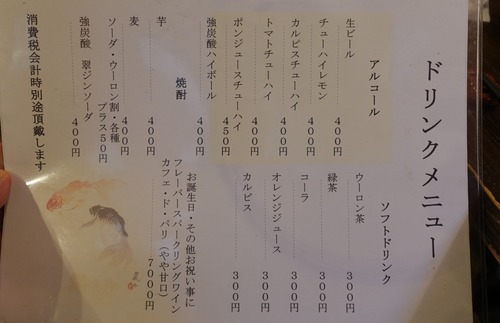 ドリンクメニュー
アルコール
生ビール 400円
チューハイレモン 400円
カルピスチューハイ 400円
トマトチューハイ 400円
ポンジュースチューハイ 450円
強炭酸ハイボール 400円
焼酎
芋 400円
麦 400円
ソーダ・ウーロン割・各種 プラス50円
強炭酸 翠ジンソーダ 400円
消費税会計時別途頂戴します
ソフトドリンク
ウーロン茶 300円
緑茶 300円
コーラ 300円
オレンジジュース 300円
カルピス 300円
お誕生日・その他お祝い事に
フレーバースパークリングワイン
カフェ・ド・パリ(やや甘口) 7000円